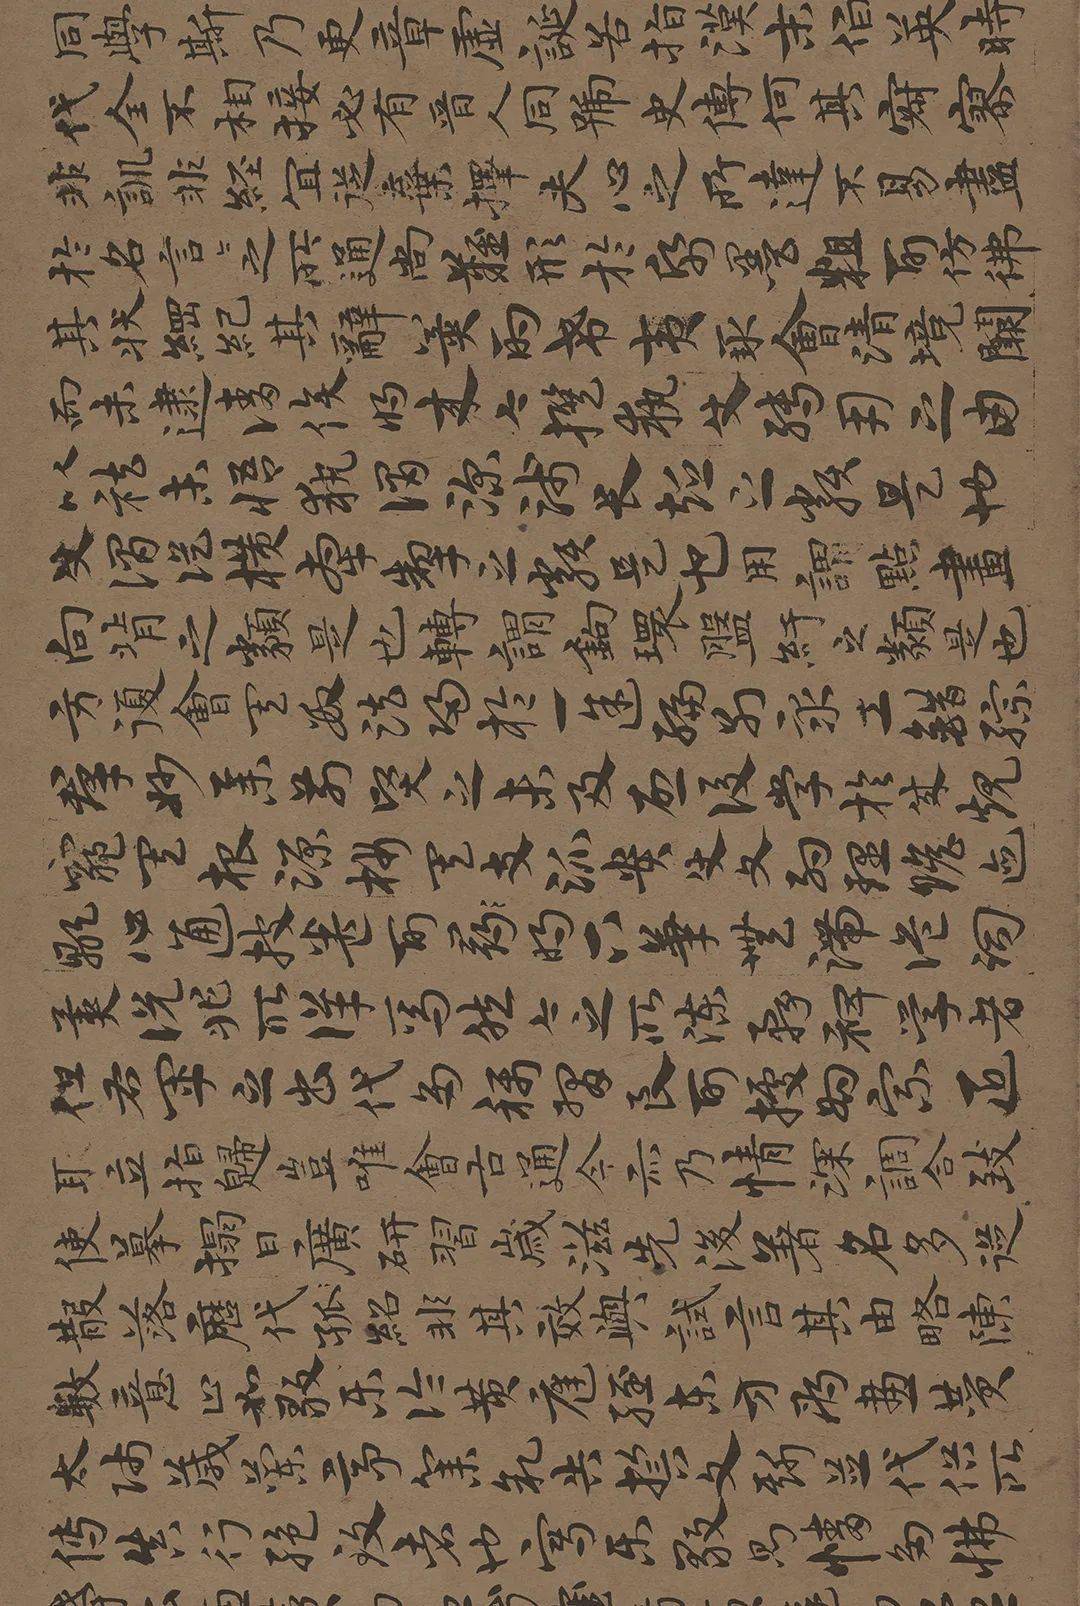 同學斯乃更章虛誕若指漢末伯英時
代全不相接必有晉人同號史傳何其寂寥
非訓非經宜從棄擇夫心之所達不易盡
於名言言之所通尚難形於紙墨粗可仿佛
其狀綱紀其辭冀酌希夷取會清境闕
而未逮請俟將來今撰執使轉用之由
以祛未悟執謂深淺長短之類是也
使謂縱橫牽掣之類是也用謂點畫
向背之類是也轉謂鉤環盤紆之類是也
方復會其數法歸於一途編列眾工錯綜
群妙舉前賢之未及啟後學於成規
窺其根源析其枝派貴使文約理贍迹
顯心通披卷可明下筆無滯詭詞
異說非所詳焉然今之所陳務裨學者
但右軍之書代多稱習良可據為宗匠
取立指歸豈唯會古通今亦乃情深調合致
使摹搨日廣研習歲滋先後著名多從
散落歷代孤紹非其效與試言其由略陳
數意止如樂毅論黃庭經東方朔畫贊
太師箴蘭亭集序告誓文斯並代俗所
傳真行絕致者也寫樂毅則情多怫